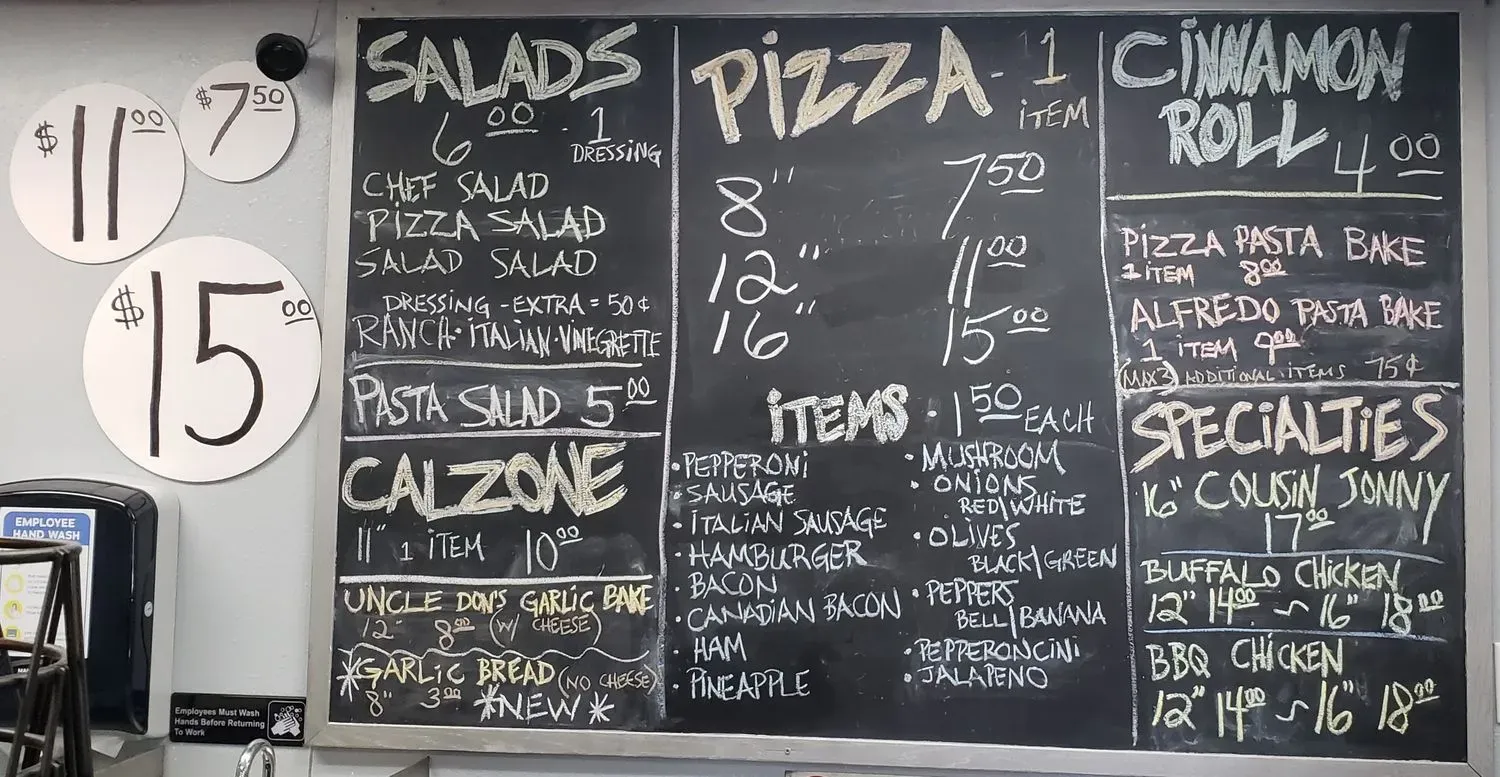 $7 50
$11 00
$15 00
EMPLOYEE
HAND WASH
Employees Must Wash
Hands Before Returning
To Work
SALADS
6 00 - 1
DRESSING
CHEF SALAD
PIZZA SALAD
SALAD SALAD
DRESSING - EXTRA = 50¢
RANCH · ITALIAN · VINEGRETTE
PASTA SALAD 5 00
CALZONE
11" 1 ITEM 10 00
UNCLE DON'S GARLIC BAKE
12" 8 00 (W/ CHEESE)
*GARLIC BREAD (NO CHEESE)
8" 3 00 *NEW*
PIZZA - 1
ITEM
8" 7 50
12" 11 00
16" 15 00
ITEMS · 1 50 EACH
· PEPPERONI
· SAUSAGE
· ITALIAN SAUSAGE
· HAMBURGER
· BACON
· CANADIAN BACON
· HAM
· PINEAPPLE
· MUSHROOM
· ONIONS
RED/WHITE
· OLIVES
BLACK/GREEN
· PEPPERS
BELL/BANANA
· PEPPERONCINI
· JALAPENO
CINNAMON
ROLL 4 00
PIZZA PASTA BAKE
1 ITEM 8 00
ALFREDO PASTA BAKE
1 ITEM 9 00
(MAX 3) ADDITIONAL ITEMS 75¢
SPECIALTIES
16" COUSIN JONNY
17 00
BUFFALO CHICKEN
12" 14 00 ~ 16" 18 00
BBQ CHICKEN
12" 14 00 ~ 16" 18 00